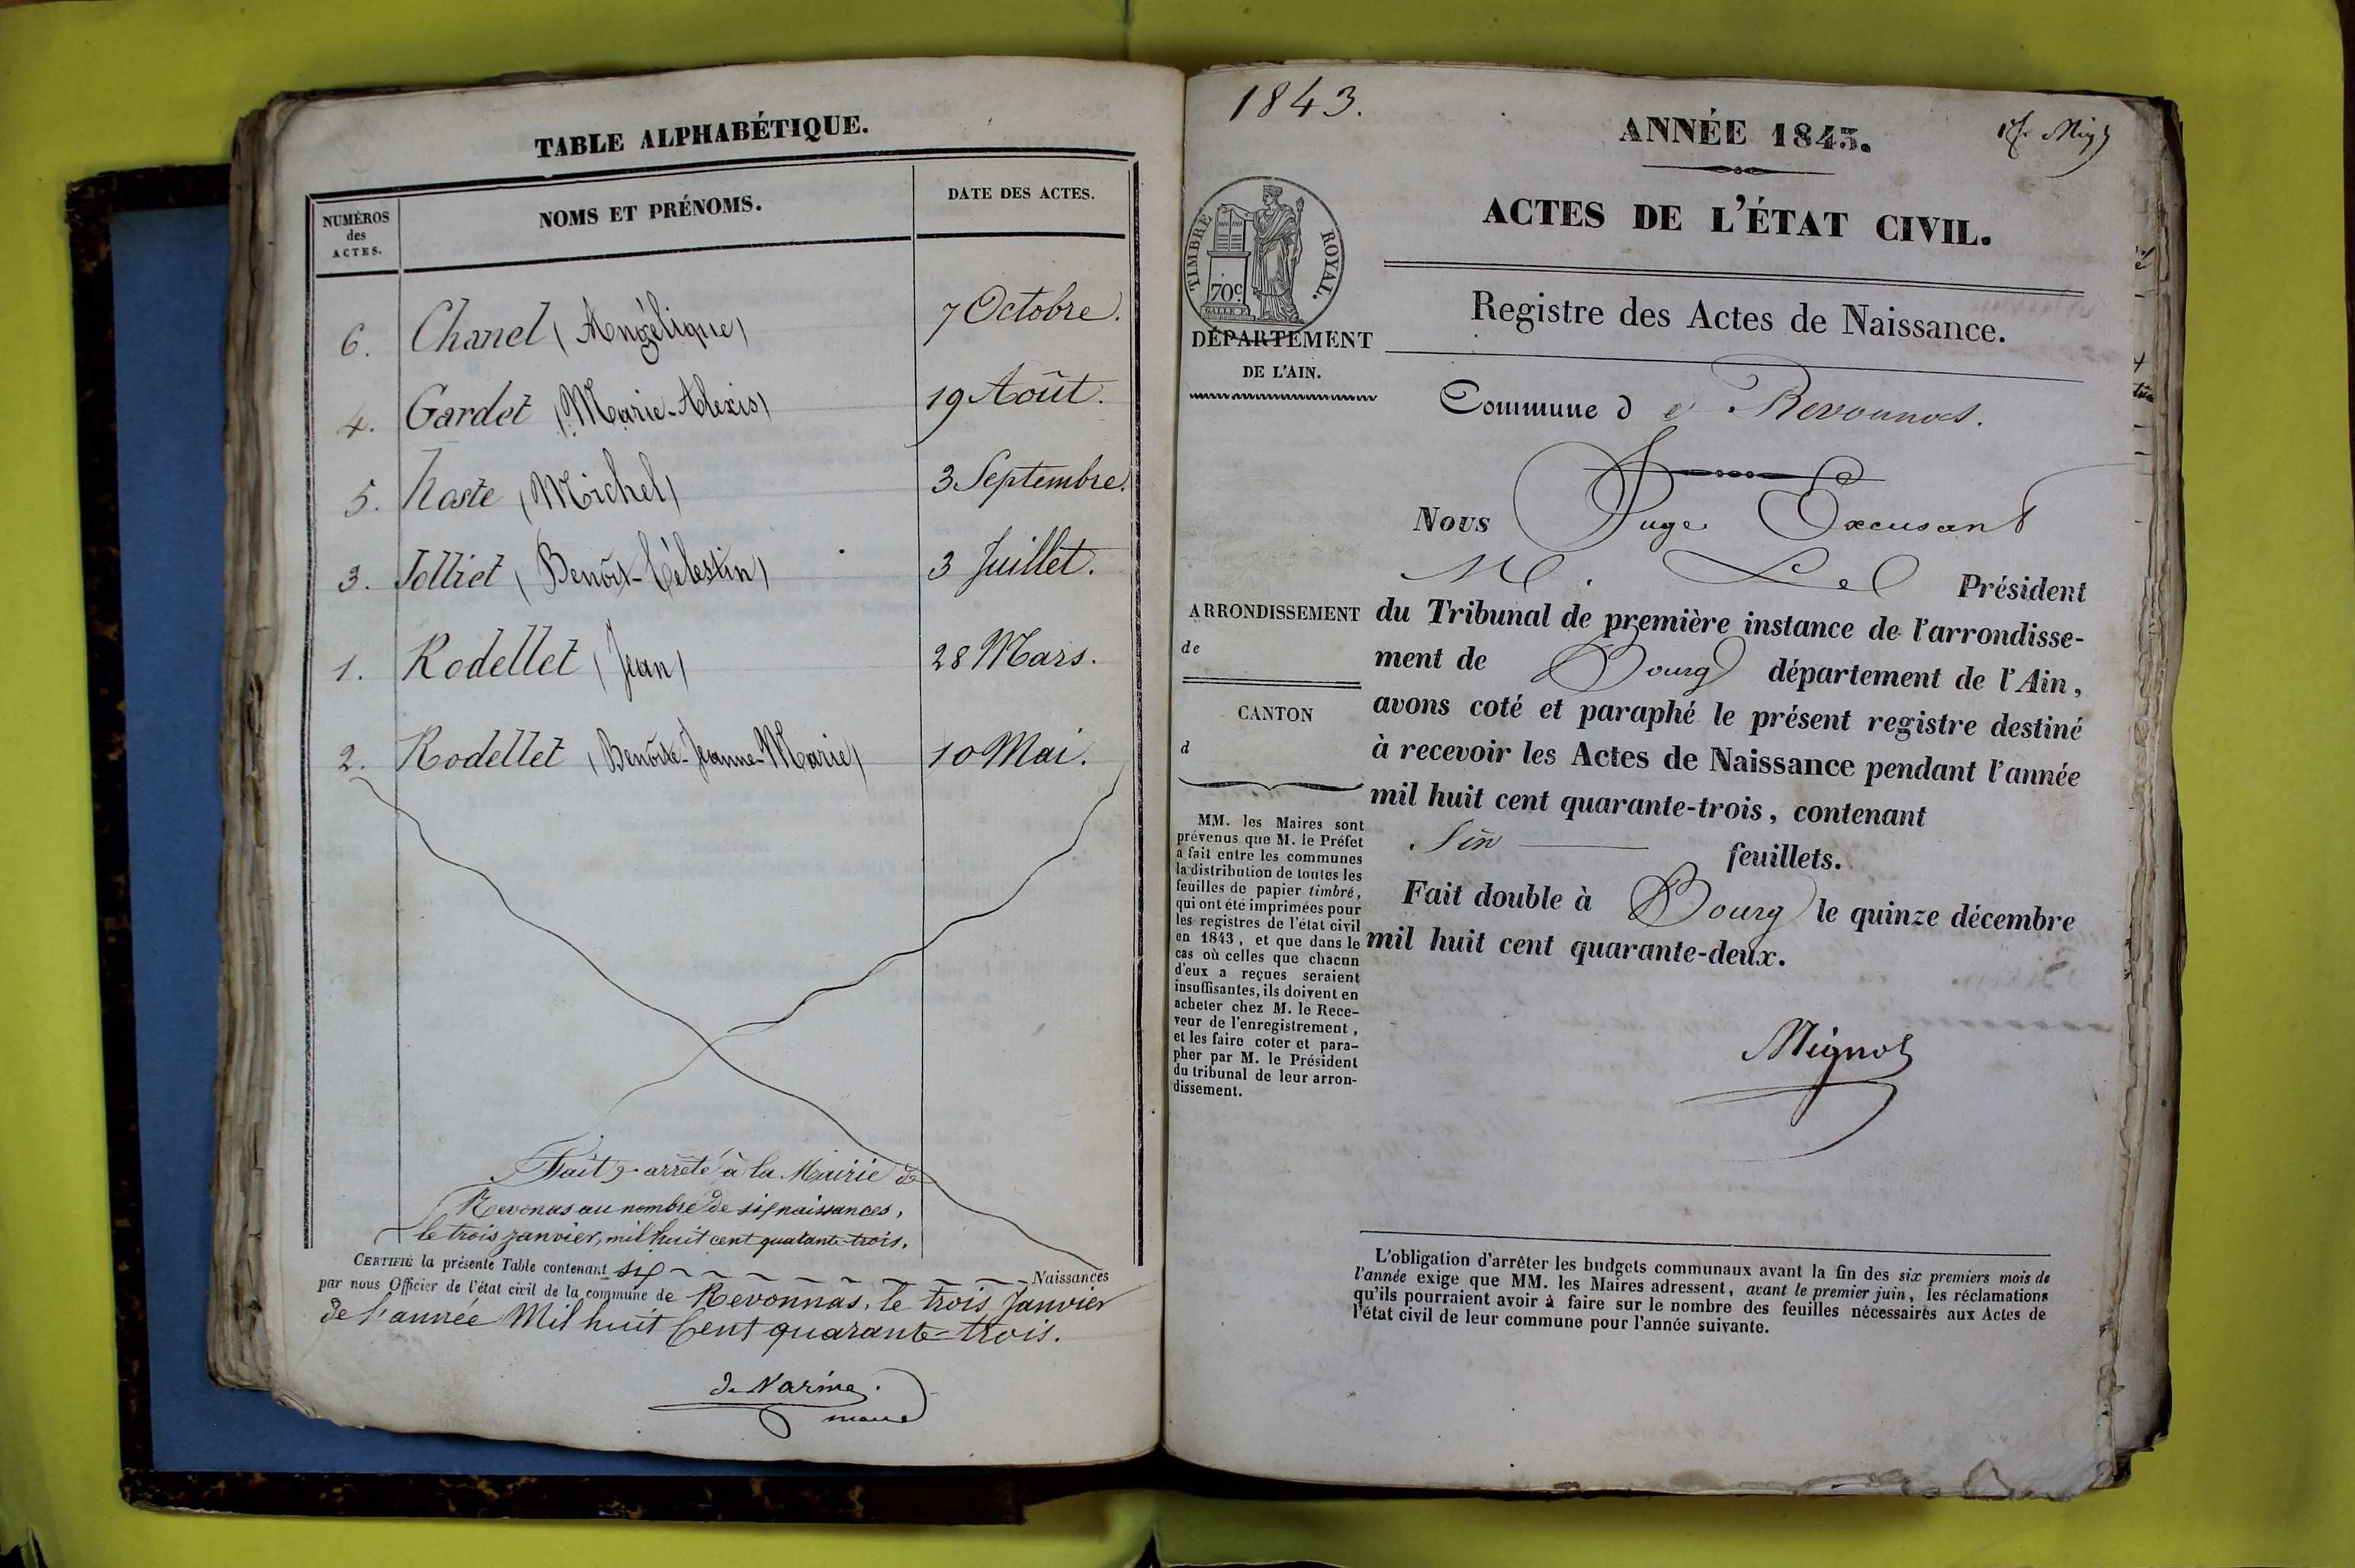 TABLE ALPHABÉTIQUE.
NUMÉROS
des
ACTES.
NOMS ET PRÉNOMS.
DATE DES ACTES.
6. Chanel (Angélique) 7 Octobre.
4. Gardet (Marie-Alexis) 19 Août.
5. Haste (Michel) 3 Septembre.
3. Jolliet (Benôit-Célestin) 3 Juillet.
1. Rodellet (Jean) 28 Mars.
2. Rodellet (Benôite-Jeanne-Marie) 10 Mai.
Fait & arrêté à la Mairie de
Revonas au nombre de six naissances,
le trois janvier, mil huit cent quatante-trois.
CERTIFIÉ la présente Table contenant six Naissances
par nous Officier de l'état civil de la commune de Revonnas, le trois Janvier
de l'année Mil huit Cent quarante-trois.
maire
1843.
ANNÉE 1843.
ACTES DE L'ÉTAT CIVIL.
TIMBRE ROYAL.
70c
DÉPARTEMENT
DE L'AIN.
Registre des Actes de Naissance.
Commune de Revonnas.
Nous Juge Excusant
M. Le Président
ARRONDISSEMENT
de
CANTON
d
du Tribunal de première instance de l'arrondisse-
ment de Bourg département de l'Ain,
avons coté et paraphé le présent registre destiné
à recevoir les Actes de Naissance pendant l'année
mil huit cent quarante-trois, contenant
Six feuillets.
Fait double à Bourg le quinze décembre
mil huit cent quarante-deux.
Mignot
MM. les Maires sont
prévenus que M. le Préfet
a fait entre les communes
la distribution de toutes les
feuilles de papier timbré,
qui ont été imprimées pour
les registres de l'état civil
en 1843, et que dans le
cas où celles que chacun
d'eux a reçues seraient
insuffisantes, ils doivent en
acheter chez M. le Rece-
veur de l'enregistrement,
et les faire coter et para-
pher par M. le Président
du tribunal de leur arron-
dissement.
L'obligation d'arrêter les budgets communaux avant la fin des six premiers mois de
l'année exige que MM. les Maires adressent, avant le premier juin, les réclamations
qu'ils pourraient avoir à faire sur le nombre des feuilles nécessaires aux Actes de
l'état civil de leur commune pour l'année suivante.